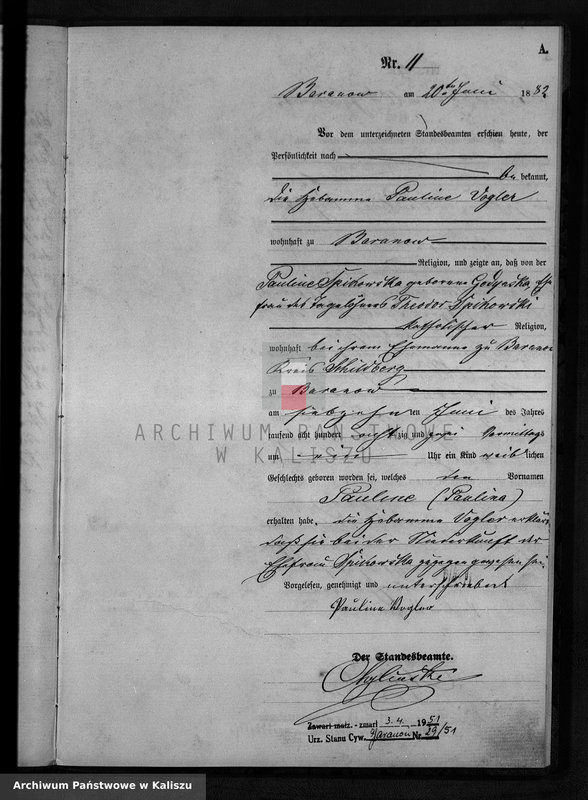 A.
Nr. 11
Baranow am 20ten Juni 1882
Vor dem unterzeichneten Standesbeamten erschien heute, der
Persönlichkeit nach
bekannt,
die Hebamme Pauline Vogler
wohnhaft zu Baranow
Religion, und zeigte an, daß von der
Pauline Spikowska geborene Ehe
frau des Tagelöhners Theodor Spikowski
katholischer Religion,
wohnhaft bei ihrem Ehemanne zu Baranow
Kreis Schildberg
zu Baranow
am siebzehnten Juni des Jahres
tausend acht hundert achtzig und zwei Vormittags
um Uhr ein Kind weiblichen
Geschlechts geboren worden sei, welches den Vornamen
Pauline (Paulina)
erhalten habe. Die Hebamme Vogler erklärt
daß sie bei der Niederkunft der
Ehefrau Spikowska zugegen gewesen sei.
Vorgelesen, genehmigt und unterschrieben
Pauline Vogler
Der Standesbeamte.
Zawarł małż. - zmarł 3.4. 1951
Urz. Stanu Cyw. Baranów Nr 29/51
ARCHIWUM PAŃSTWOWE
W KALISZU
Archiwum Państwowe w Kaliszu